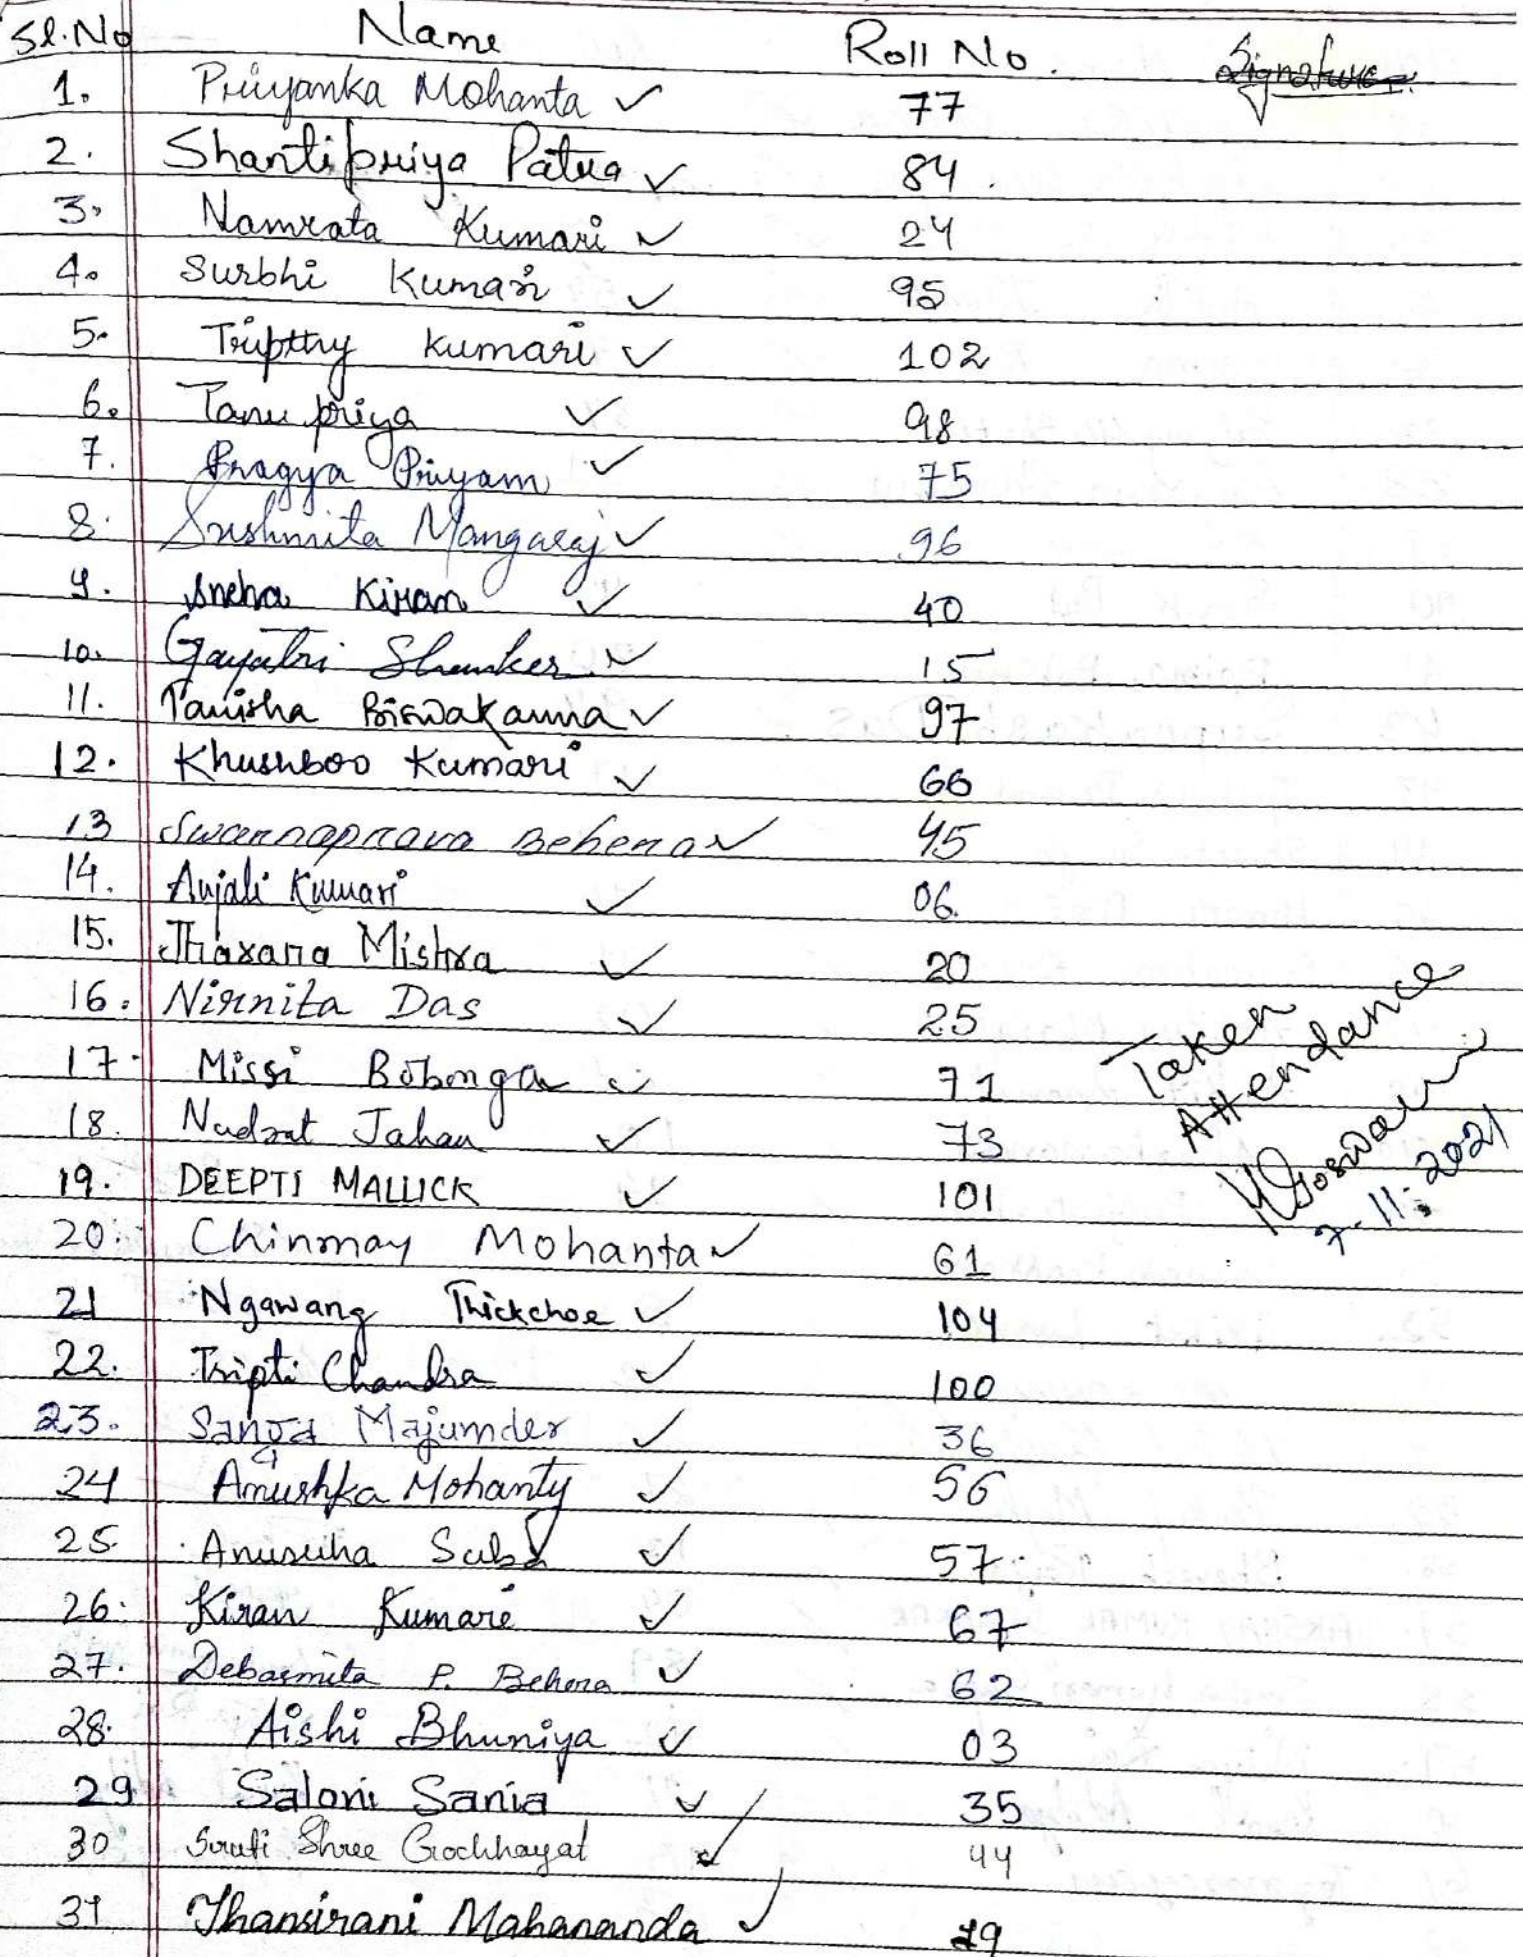 Sl.No Name Roll No. Signature
1. Priyanka Mohanta ✓ 77
2. Shantipriya Patra ✓ 84.
3. Namrata Kumari ✓ 24
4. Surbhi Kumari ✓ 95
5. Tripthy kumari ✓ 102
6. Tanu priya ✓ 98
7. Pragya Priyam ✓ 75
8. Sushmita Mangaraj ✓ 96
9. Sneha Kiran ✓ 40
10. Gayatri Shanker ✓ 15
11. Tanisha Biswakarma ✓ 97
12. Khushboo Kumari ✓ 66
13 Swarnaprava Behera ✓ 45
14. Anjali Kumari ✓ 06.
15. Jharana Mishra ✓ 20
16. Nirnita Das ✓ 25
17. Missi Bobonga ✓ 71
18. Nudrat Jahan ✓ 73
19. DEEPTI MALLICK ✓ 101
20. Chinmay Mohanta ✓ 61
21 Ngawang Thickchoe ✓ 104
22. Tripti Chandra ✓ 100
23. Majumder ✓ 36
24 Anushka Mohanty ✓ 56
25. Anuskha ✓ 57
26. Kiran Kumari ✓ 67
27. Debasmita P. Behera ✓ 62
28. Aishi Bhuniya ✓ 03
29 Saloni Sania ✓ 35
30 Sruti Shree Gochhayat ✓ 44
31 Jhansirani Mahananda ✓ 19
Taken
Attendance
Goswami
7.11.2021